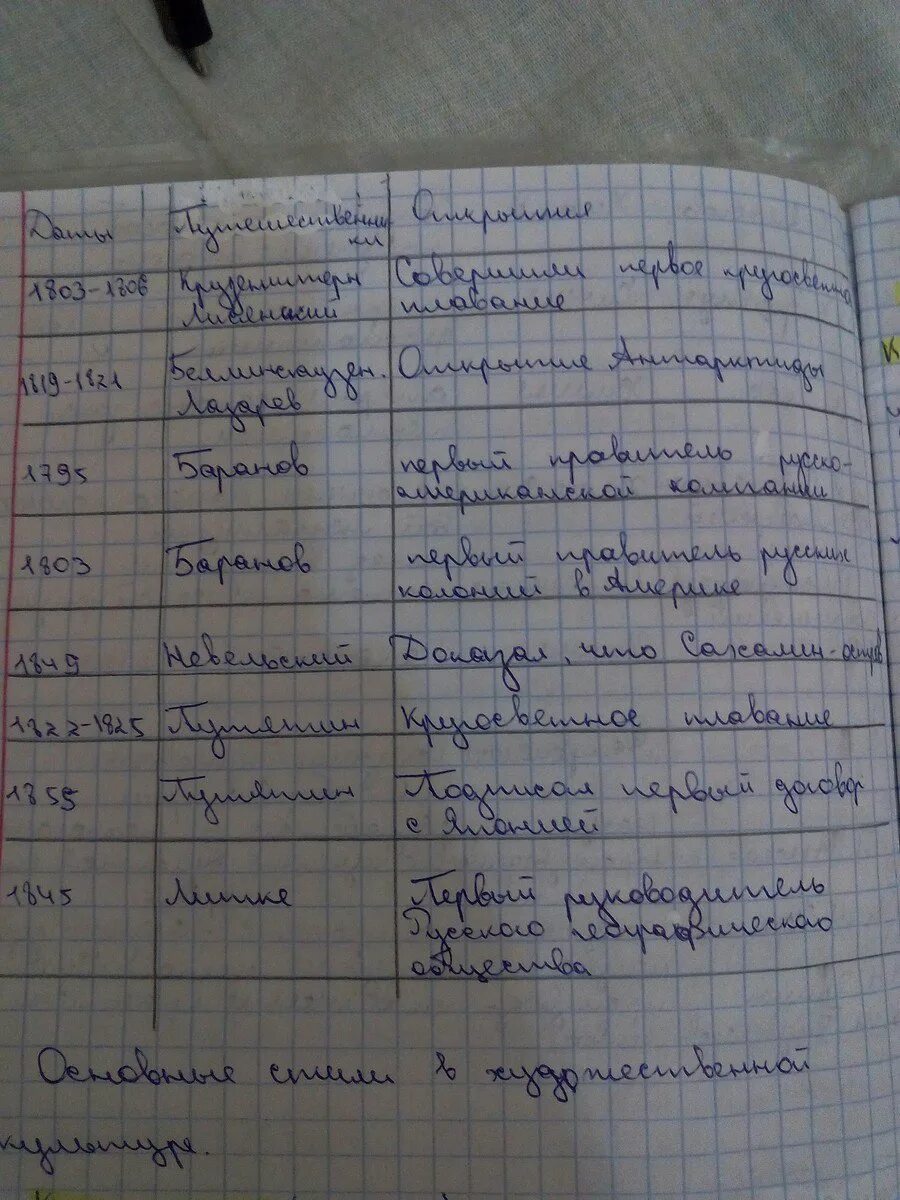 Даты
Путешественни
ки
Открытия
1803-1806
Крузенштерн
Лисянский
Совершили первое кругосветно
плавание
1819-1821
Беллинсгаузен.
Лазарев
Открытие Антарктиды
1795
Баранов
первый правитель русско-
американской компании
1803
Баранов
первый правитель русских
колоний в Америке
1849
Невельский
Доказал, что Сахалин-остров
1822-1825
Путятин
Кругосветное плавание
1855
Путятин
Подписал первый договор
с Японией
1845
Литке
Первый руководитель
Русского географического
общества
Основные стили в художественной
культуре.